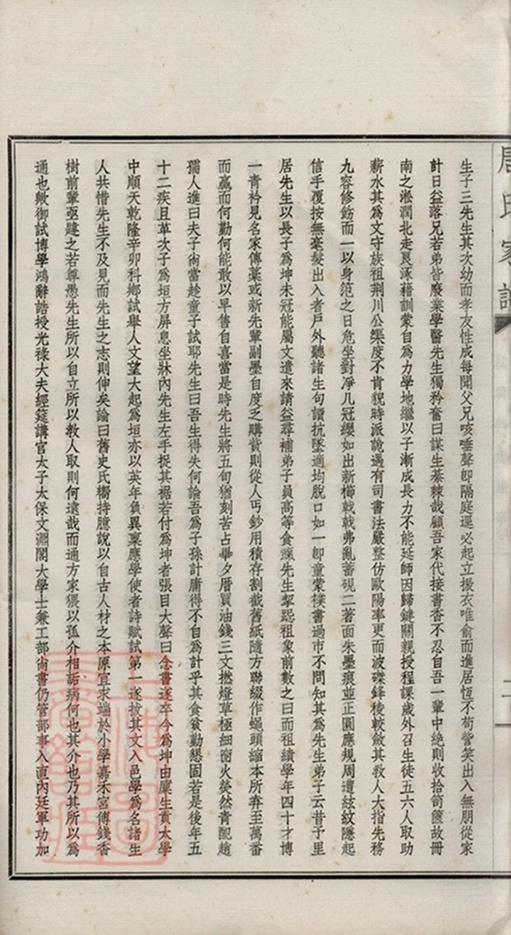 生子三先生其次幼而孝友性成每聞父兄咳唾聲即隔庭遝必起立撰衣唯俞而進居恆不苟訾笑出入無朋從家
計日益落兄若弟皆廢業學醫先生獨矜奮曰謀生蔡棘哉顧吾家代接書香不忍自吾一輩中絕則收拾笥篋故冊
南之淞濶北走艮涿藉訓蒙自為力學地繼以子漸成長力不能延師因歸鍵關親授程課歲外召生徒五六人取助
薪水其為文守族祖荊川公榘度不肯貌時派詭遇有司書法嚴整仿歐陽率更而波磔鋒稜較斂其教人大指先務
九容修飭而一以身范之日危坐對淨几冠纓如出新櫛戢戢弗亂蓄硯二著面朱墨痕並正圓應規周遭紋紋隱起
信手覆按無毫髮出入者戶外聽諸生句讀抗墜適均脫口如一即童蒙襆書過巿不問知其為先生弟子云昔予里
居先生以長子為坤未冠能屬文遣來請益尋補弟子員高等食餼先生挈跽祖象前數之曰而祖績學年四十才博
一青衿見名家傳藁或新先輩副墨自度之購貲則從人丐鈔用積存割截舊紙隨方聯綴作蠅頭縮本所弆至萬番
而羸而何勤何能敢以早售自喜當是時先生將五旬猶刻苦占畢夕厝買油錢三文撚燈草極細窗火熒然青配趙
孺人進曰夫子尚當趁童子試耶先生曰吾生得失何論吾為子孫計庸得不自為計乎其食貧勤懇固若是後年五
十二疾且革次子為垣方屏息坐牀內先生左手捉其裾若付為坤者張目大聲曰念書遂卒今為坤由廩生貢太學
中順天乾隆辛卯科鄉試舉人文望大起為垣亦以英年負異稟應學使者詩賦試第一遂拔其文入邑學為名諸生
人共惜先生不及見而先生之志則伸矣論曰舊史氏櫛持臆說以自古人材之本原宜求端於小學嘉禾宮傅錢香
樹前輩亟韙之若尊愚先生所以自立所以教人取則何遠哉而通方家猥以孤介相詬病何也其介也乃其所以為
通也歟御試博學鴻辭誥授光祿大夫經筵講官太子太保文淵閣大學士兼工部尚書仍管部事入直內廷軍功加